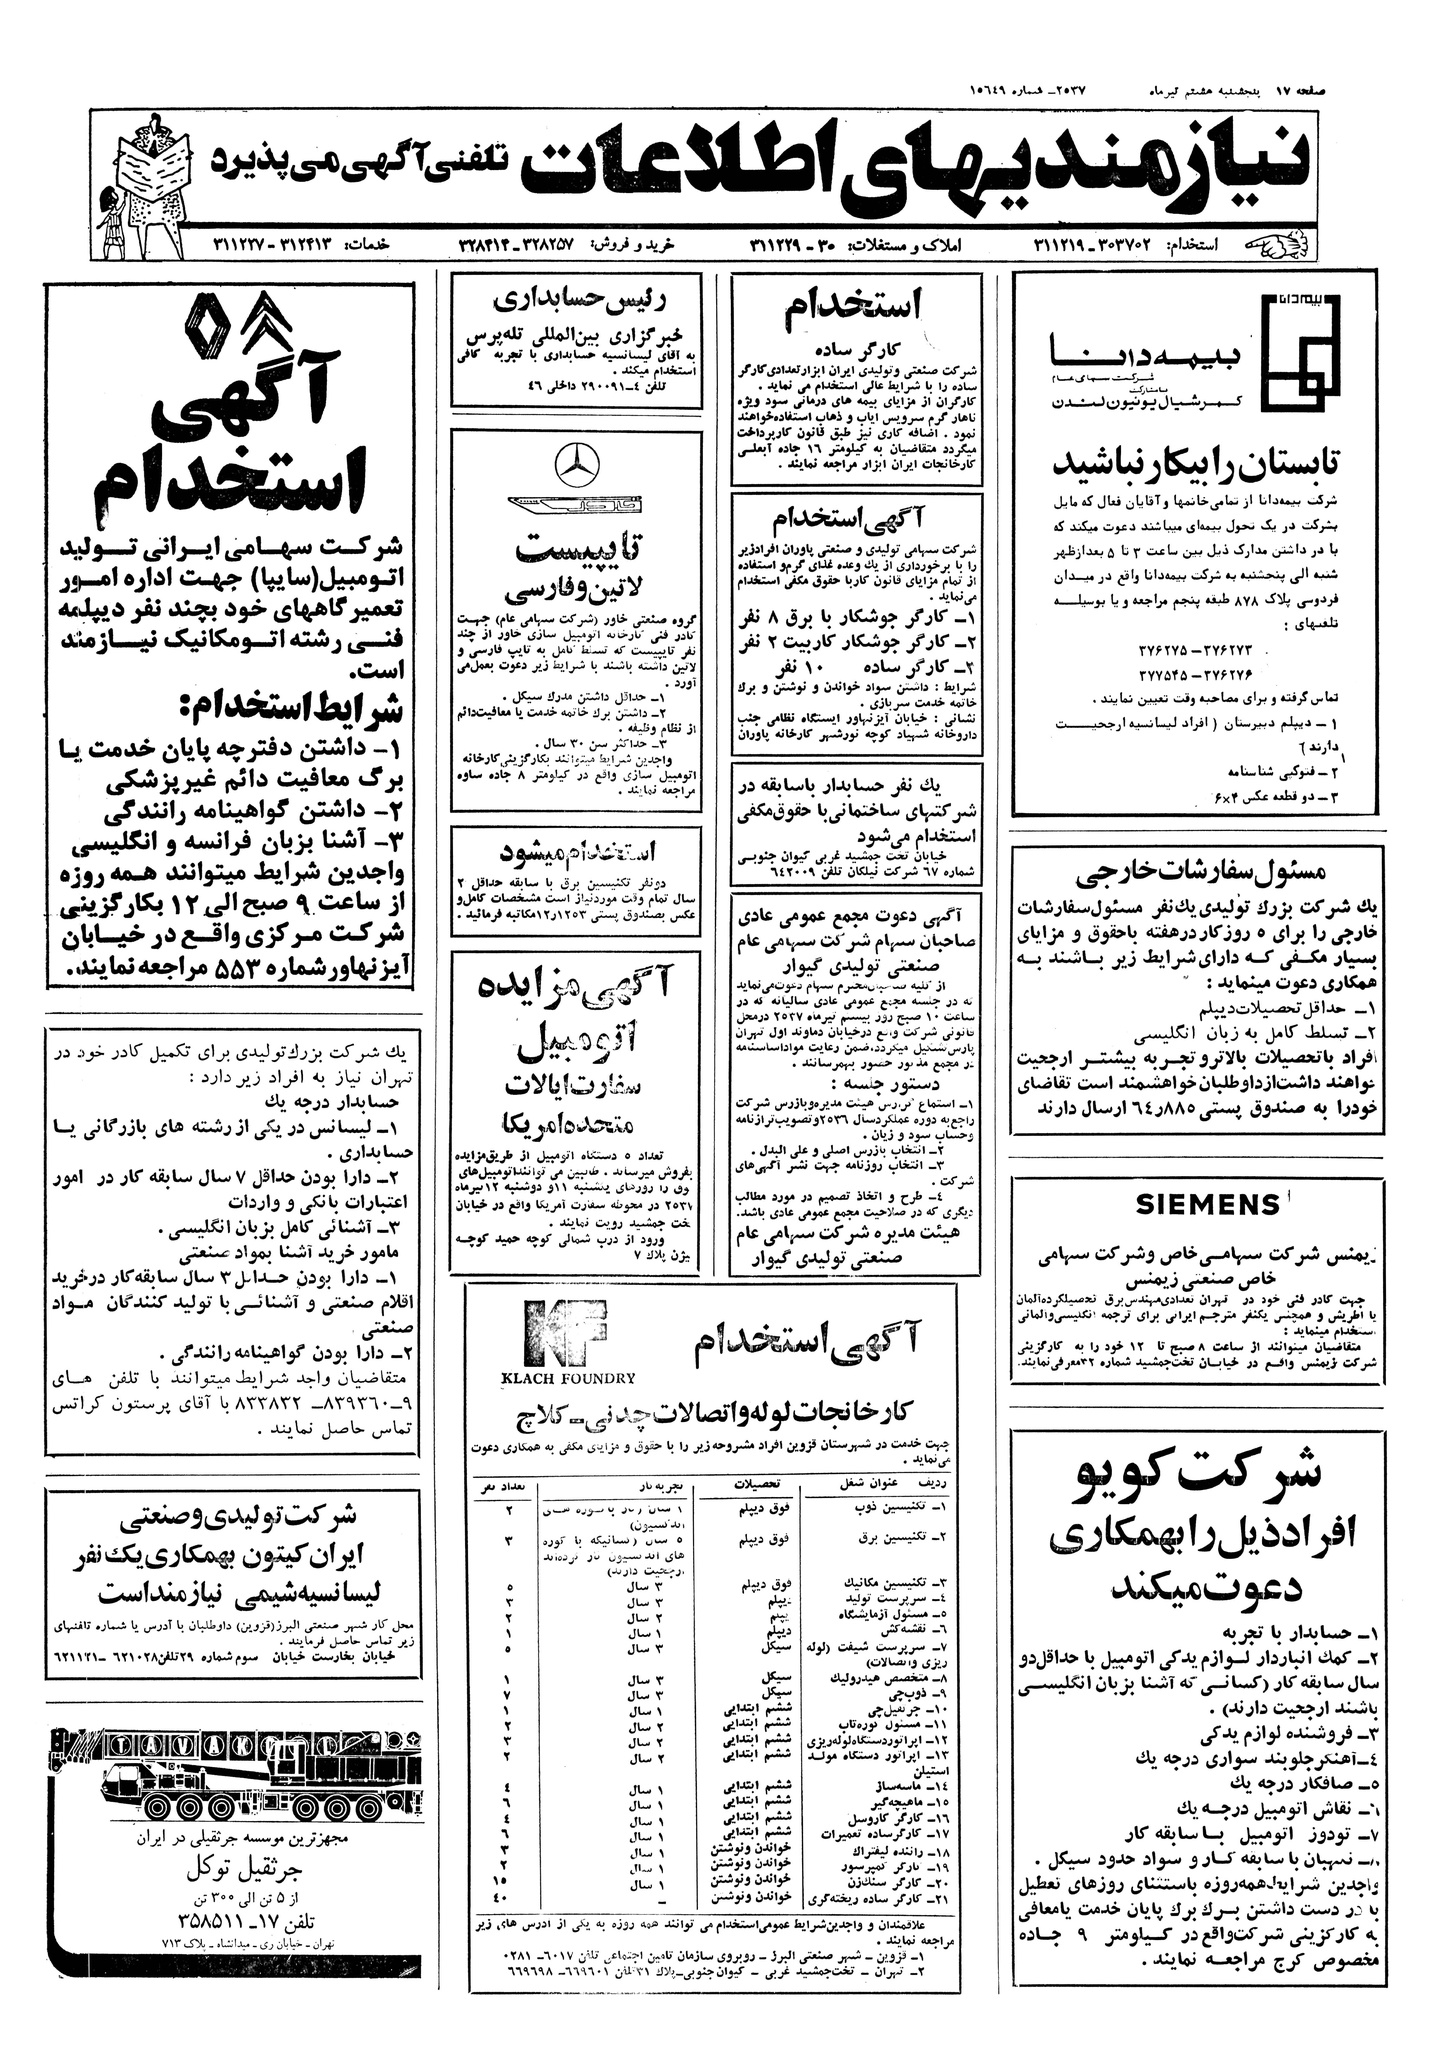 صفحه ۱۷ پنجشنبه هفتم تیرماه ۲۵۳۷ـ شماره ۱۵۶۴۹
نیازمندیهای اطلاعات تلفنی آگهی می‌پذیرد
استخدام: ۳۰۳۷۰۲ ـ ۳۱۱۲۱۹ املاک و مستغلات: ۳۰ - ۳۱۱۲۲۹ خرید و فروش: ۳۲۸۲۵۷ - ۳۲۸۴۱۴ خدمات: ۳۱۲۴۱۳ - ۳۱۱۲۲۷
بیمه دانا
بیمه دانا
شرکت سهامی عام
با مشارکت
کمرشیال یونیون لندن
تابستان را بیکار نباشید
شرکت بیمه‌دانا از تمامی خانمها و آقایان فعال که مایل
بشرکت در یک تحول بیمه‌ای میباشند دعوت میکند که
با در داشتن مدارک ذیل بین ساعت ۳ تا ۵ بعدازظهر
شنبه الی پنجشنبه به شرکت بیمه‌دانا واقع در میدان
فردوسی پلاک ۸۷۸ طبقه پنجم مراجعه و یا بوسیله
تلفنهای :
۳۷۶۲۷۳ـ ۳۷۶۲۷۵
۳۷۶۲۷۶ـ ۳۷۷۵۴۵
تماس گرفته و برای مصاحبه وقت تعیین نمایند .
۱ ـ دیپلم دبیرستان ( افراد لیسانسیه ارجحیت
دارند )
۲ ـ فتوکپی شناسنامه
۳ ـ دو قطعه عکس ۴×۶
مسئول سفارشات خارجی
یك شرکت بزرك تولیدی یك نفر مسئول سفارشات
خارجی را برای ۵ روز کار در هفته باحقوق و مزایای
بسیار مکفی که دارای شرایط زیر باشند به
همکاری دعوت مینماید :
۱ـ حداقل تحصیلات دیپلم
۲ـ تسلط کامل به زبان انگلیسی
افراد با تحصیلات بالاتر و تجربه بیشتر ارجحیت
خواهند داشت از داوطلبان خواهشمند است تقاضای
خودرا به صندوق پستی ۸۸۵ر۶۴ ارسال دارند
SIEMENS
زیمنس شرکت سهامی خاص و شرکت سهامی
خاص صنعتی زیمنس
جهت کادر فنی خود در تهران تعدادی مهندس برق تحصیلکرده آلمان
یا اطریش و همچنین یکنفر مترجم ایرانی برای ترجمه انگلیسی و آلمانی
استخدام مینماید :
متقاضیان میتوانند از ساعت ۸ صبح تا ۱۲ خود را به کارگزینی
شرکت زیمنس واقع در خیابان تخت‌جمشید شماره ۳۲ معرفی نمایند.
شرکت کویو
افراد ذیل را بهمکاری
دعوت میکند
۱ـ حسابدار با تجربه
۲ـ کمك انباردار لوازم یدکی اتومبیل با حداقل دو
سال سابقه کار (کسانی که آشنا بزبان انگلیسی
باشند ارجحیت دارند) .
۳ـ فروشنده لوازم یدکی
۴ـ آهنگر جلوبند سواری درجه یك
۵ـ صافکار درجه یك
۶ـ نقاش اتومبیل درجه یك
۷ـ تودوز اتومبیل با سابقه کار
۸ـ نگهبان با سابقه کار و سواد حدود سیکل .
واجدین شرایط همه روزه باستثنای روزهای تعطیل
با در دست داشتن برك برك پایان خدمت یامعافی
به کارگزینی شرکت واقع در کیلومتر ۹ جاده
مخصوص کرج مراجعه نمایند .
استخدام
کارگر ساده
شرکت صنعتی و تولیدی ایران ابزار تعدادی کارگر
ساده را با شرایط عالی استخدام می نماید .
کارگران از مزایای بیمه های درمانی سود ویژه
ناهار گرم سرویس ایاب و ذهاب استفاده خواهند
نمود . اضافه کاری نیز طبق قانون کار پرداخت
میگردد متقاضیان به کیلومتر ۱۶ جاده آبعلی
کارخانجات ایران ابزار مراجعه نمایند .
آگهی استخدام
شرکت سهامی تولیدی و صنعتی پاوران افراد زیر
را با برخورداری از یك وعده غذای گرم و استفاده
از تمام مزایای قانون کار با حقوق مکفی استخدام
می‌نماید .
۱ـ کارگر جوشکار با برق ۸ نفر
۲ـ کارگر جوشکار کاربیت ۲ نفر
۳ـ کارگر ساده ۱۰ نفر
شرایط : داشتن سواد خواندن و نوشتن و برك
خاتمه خدمت سربازی .
نشانی : خیابان آیزنهاور ایستگاه نظامی جنب
داروخانه شهیاد کوچه نورشهر کارخانه پاوران
یك نفر حسابدار باسابقه در
شرکتهای ساختمانی با حقوق مکفی
استخدام می‌شود
خیابان تخت جمشید غربی کیوان جنوبی
شماره ۶۷ شرکت نیلکان تلفن ۶۴۲۰۰۹
آگهی دعوت مجمع عمومی عادی
صاحبان سهام شرکت سهامی عام
صنعتی تولیدی گیوار
از کلیه صاحبان محترم سهام دعوت می‌نماید
که در جلسه مجمع عمومی عادی سالیانه که در
ساعت ۱۰ صبح روز بیستم تیرماه ۲۵۳۷ درمحل
قانونی شرکت واقع در خیابان دماوند اول تهران
پارس تشکیل میگردد، ضمن رعایت مواد اساسنامه
در مجمع مذکور حضور بهمرسانند .
دستور جلسه :
۱ـ استماع گزارش هیئت مدیره و بازرس شرکت
راجع به دوره عملکرد سال ۲۵۳۶ و تصویب ترازنامه
و حساب سود و زیان .
۲ـ انتخاب بازرس اصلی و علی البدل .
۳ـ انتخاب روزنامه جهت نشر آگهی‌های
شرکت .
۴ـ طرح و اتخاذ تصمیم در مورد مطالب
دیگری که در صلاحیت مجمع عمومی عادی باشد.
هیئت مدیره شرکت سهامی عام
صنعتی تولیدی گیوار
رئیس حسابداری
خبرگزاری بین‌المللی تله‌پرس
به آقای لیسانسیه حسابداری با تجربه کافی
استخدام میکند .
تلفن ۴ـ۲۹۰۰۹۱ داخلی ۴۶
خاور
تایپیست
لاتین و فارسی
گروه صنعتی خاور (شرکت سهامی عام) جهت
کادر فنی کارخانه اتومبیل سازی خاور از چند
نفر تایپیست که تسلط کامل به تایپ فارسی و
لاتین داشته باشند با شرایط زیر دعوت بعمل‌می
آورد .
۱ـ حداقل داشتن مدرك سیکل .
۲ـ داشتن برك خاتمه خدمت یا معافیت دائم
از نظام وظیفه .
۳ـ حداکثر سن ۳۰ سال .
واجدین شرایط میتوانند بکارگزینی کارخانه
اتومبیل سازی واقع در کیلومتر ۸ جاده ساوه
مراجعه نمایند .
استخدام میشود
دو نفر تکنیسین برق با سابقه حداقل ۲
سال تمام وقت مورد نیاز است مشخصات کامل و
عکس بصندوق پستی ۱۲۰۳ر۱۲ مکاتبه فرمائید .
آگهی مزایده
اتومبیل
سفارت ایالات
متحده امریکا
تعداد ۵ دستگاه اتومبیل از طریق مزایده
بفروش میرساند . طالبین می توانند اتومبیل‌های
فوق را روزهای یکشنبه ۱۱ و دوشنبه ۱۲ تیرماه
۲۵۳۷ در محوطه سفارت آمریکا واقع در خیابان
تخت جمشید رویت نمایند .
ورود از درب شمالی کوچه حمید کوچه
بیژن پلاك ۷
آگهی استخدام
KF
KLACH FOUNDRY
کارخانجات لوله و اتصالات چدنی ـ کلاچ
جهت خدمت در شهرستان قزوین افراد مشروحه زیر را با حقوق و مزایای مکفی به همکاری دعوت
می‌نماید .
ردیف عنوان شغل تحصیلات تجربه کار تعداد نفر
۱ـ تکنیسین ذوب فوق دیپلم ۲
۲ـ تکنیسین برق فوق دیپلم ۵ سال (کسانیکه با کوره ۳
های اندکسیون کار کرده‌اند
ارجحیت دارند)
۳ـ تکنیسین مکانیك فوق دیپلم ۳ سال ۵
۴ـ سرپرست تولید دیپلم ۳ سال ۳
۵ـ مسئول آزمایشگاه دیپلم ۲ سال ۲
۶ـ نقشه‌کش دیپلم ۱ سال ۱
۷ـ سرپرست شیفت (لوله سیکل ۳ سال ۵
ریزی و اتصالات)
۸ـ متخصص هیدرولیك سیکل ۳ سال ۱
۹ـ ذوب‌چی سیکل ۳ سال ۷
۱۰ـ جرثقیل‌چی ششم ابتدایی ۱ سال ۱
۱۱ـ مسئول کوره‌تاب ششم ابتدایی ۲ سال ۲
۱۲ـ اپراتور دستگاه لوله‌ریزی ششم ابتدایی ۲ سال ۳
۱۳ـ اپراتور دستگاه مولد ششم ابتدایی ۲ سال ۲
استیلن
۱۴ـ ماسه‌ساز ششم ابتدایی ۱ سال ۴
۱۵ـ ماهیچه‌گیر ششم ابتدایی ۱ سال ۶
۱۶ـ کارگر کاروسل ششم ابتدایی ۱ سال ۴
۱۷ـ کارگر ساده تعمیرات ششم ابتدایی ۱ سال ۶
۱۸ـ راننده لیفتراك خواندن و نوشتن ۱ سال ۳
۱۹ـ کارگر کمپرسور خواندن و نوشتن ۱ سال ۲
۲۰ـ کارگر سنك‌زن خواندن و نوشتن ۱ سال ۱۵
۲۱ـ کارگر ساده ریخته‌گری خواندن و نوشتن ـ ۴۰
علاقمندان و واجدین شرایط عمومی استخدام می توانند همه روزه به یکی از آدرس های زیر
مراجعه نمایند .
۱ـ قزوین ـ شهر صنعتی البرز ـ روبروی سازمان تامین اجتماعی تلفن ۶۰۱۷ـ ۰۲۸۱
۲ـ تهران ـ تخت‌جمشید غربی ـ کیوان جنوبی ـ پلاك ۳۱ تلفن ۶۶۹۶۰۱ـ ۶۶۹۶۹۸
آگهی
استخدام
شرکت سهامی ایرانی تولید
اتومبیل (سایپا) جهت اداره امور
تعمیرگاههای خود بچند نفر دیپلمه
فنی رشته اتومکانیک نیازمند
است.
شرایط استخدام:
۱- داشتن دفترچه پایان خدمت یا
برگ معافیت دائم غیرپزشکی
۲- داشتن گواهینامه رانندگی
۳- آشنا بزبان فرانسه و انگلیسی
واجدین شرایط میتوانند همه روزه
از ساعت ۹ صبح الی ۱۲ بکارگزینی
شرکت مرکزی واقع در خیابان
آیزنهاور شماره ۵۵۳ مراجعه نمایند.
یك شرکت بزرك تولیدی برای تکمیل کادر خود در
تهران نیاز به افراد زیر دارد :
حسابدار درجه یك
۱ـ لیسانس در یکی از رشته های بازرگانی یا
حسابداری .
۲ـ دارا بودن حداقل ۷ سال سابقه کار در امور
اعتبارات بانکی و واردات
۳ـ آشنائی کامل بزبان انگلیسی .
مامور خرید آشنا بمواد صنعتی
۱ـ دارا بودن حداقل ۳ سال سابقه کار در خرید
اقلام صنعتی و آشنائی با تولید کنندگان مواد
صنعتی
۲ـ دارا بودن گواهینامه رانندگی .
متقاضیان واجد شرایط میتوانند با تلفن های
۹ـ۸۳۹۳۶۰ـ ۸۳۳۸۳۲ با آقای پرستون کراتس
تماس حاصل نمایند .
شرکت تولیدی و صنعتی
ایران کیتون بهمکاری یک نفر
لیسانسیه شیمی نیازمند است
محل کار شهر صنعتی البرز (قزوین) داوطلبان با آدرس یا شماره تلفنهای
زیر تماس حاصل فرمایند .
خیابان بخارست خیابان سوم شماره ۲۹ تلفن ۶۲۱۰۲۸ ـ۶۲۱۱۲۱
TAVAKOL
مجهزترین موسسه جرثقیلی در ایران
جرثقیل توکل
از ۵ تن الی ۳۰۰ تن
تلفن ۱۷ـ ۳۵۸۵۱۱
تهران ـ خیابان ری ـ میدانشاه ـ پلاک ۷۱۳